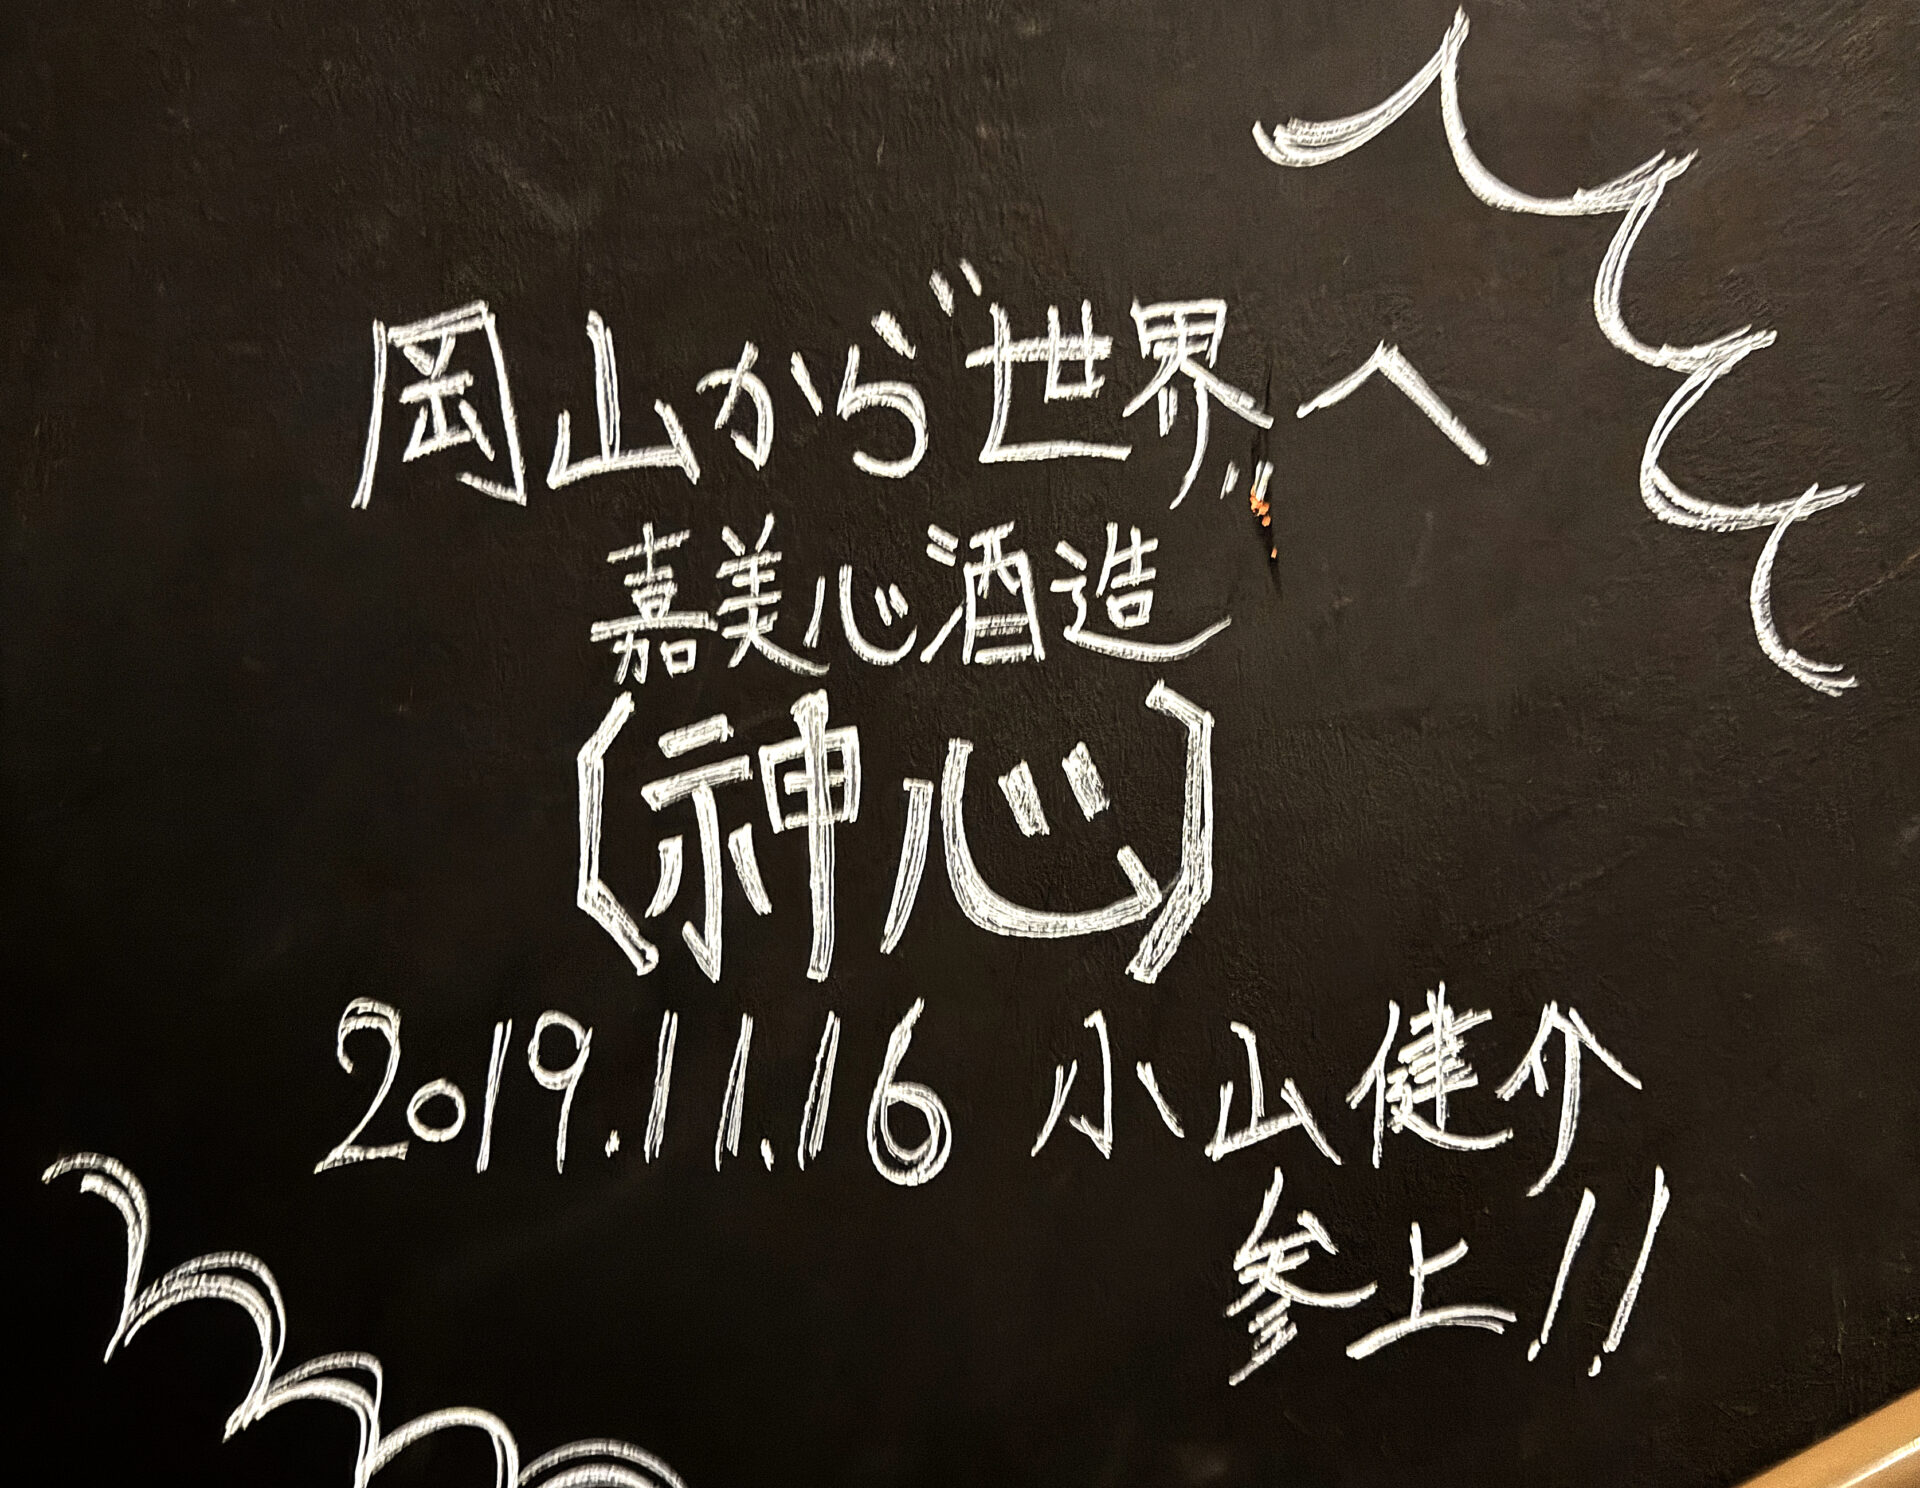 岡山から世界へ
嘉美心酒造
(神心)
2019.11.16 小山健介
参上!!